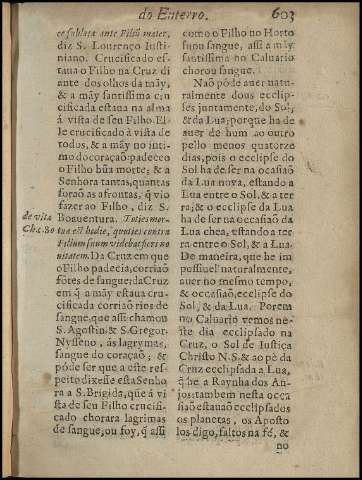 do Enterro.
603
ce sublata ante Filiũ mater,
diz S. Lourenço Iusti-
niano. Crucificado es-
taua o Filho na Cruz di
ante dos olhos da mãy,
& a mãy santissima cru
cificada estaua na alma
á vista de seu Filho. El-
le crucificado à vista de
todos, & a mãy no inti-
mo do coração: padeceo
o Filho hũa morte; & a
Senhora tantas, quantas
forão as afrontas, q̃ vio
fazer ao Filho, diz S.
Boauentura. Toties mor-
tua est hodie, quoties contra
Filium suum videbat fieri no
uitatem. Da Cruz em que
o Filho padecia, corriaõ
fõtes de sangue; da Cruz
em q̃ a mãy estaua cru-
cificada corriaõ rios de
sangue, que assi chamou
S. Agostin. & S. Gregor.
Nysseno, ás lagrymas,
sangue do coração; &
póde ser que a este res-
peito dixesse esta Senho
ra a S. Brigida, que á vi
sta de seu Filho crucifi-
cado chorara lagrimas
de sangue, ou foy, q̃ assi
de vita
Ch. c. 80
como o Filho no Horto
suou sangue, assi a mãy
santissima no Caluario
chorou sangue.
Naõ póde auer natu-
ralmente dous ecclip-
ses juntamente, do Sol,
& da Lua; porque ha de
auer de hum ao outro
pello menos quatorze
dias, pois o ecclipse do
Sol ha de ser na occasiaõ
da Lua noua, estando a
Lua entre o Sol, & a ter
ra; & o ecclipse da Lua
ha de ser na occasiaõ da
Lua chea, estando a ter-
ra entre o Sol, & a Lua.
De maneira, que he im
possiuel naturalmente,
auer no mesmo tempo,
& occasiaõ, ecclipse do
Sol, & da Lua. Porem
no Caluario vemos ne-
ste dia ecclipsado na
Cruz, o Sol de Iustiça
Christo N. S. & ao pè da
Cruz ecclipsada a Lua,
q̃ he a Raynha dos An-
jos: tambem nesta occa
siaõ estauaõ ecclipsados
os planetas, os Aposto
los digo, faltos na fé, &
no